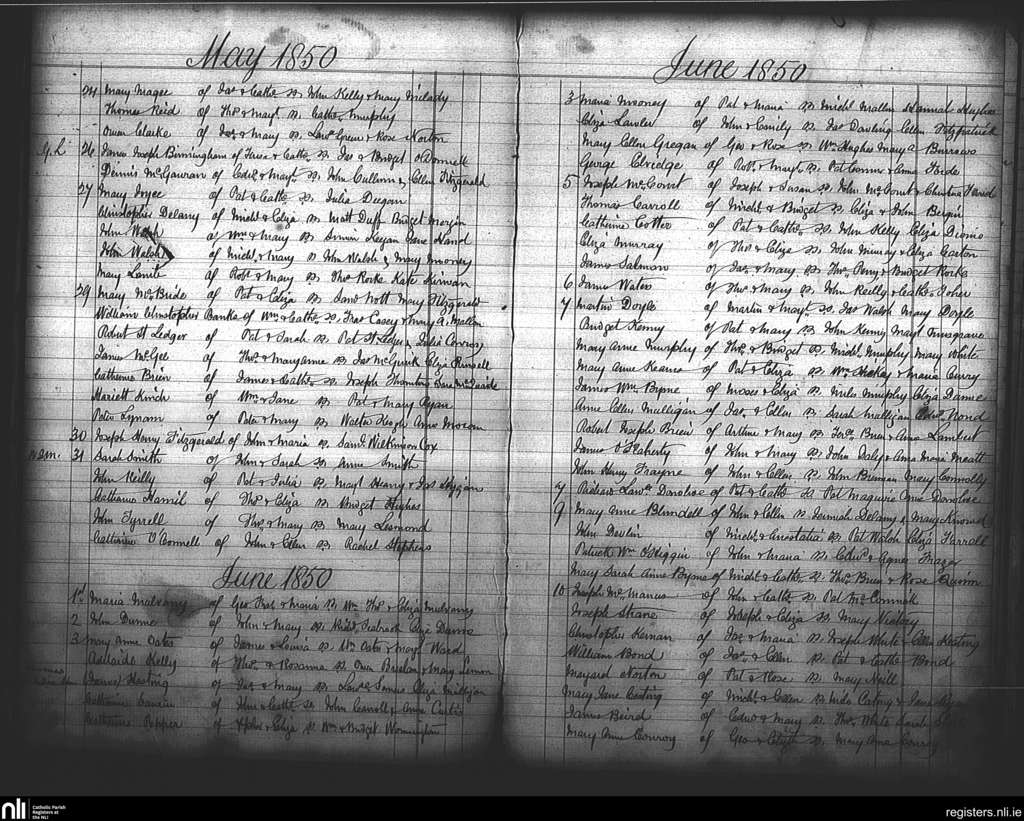 May 1850
24 Mary Magee of Jas & Cathe Ss John Kelly & Mary Melady
Thomas Reid of Thos & Margt Ss Cathe Murphy
Owen Clarke of Jas & Mary Ss Lawe & Rose Norton
26 James Joseph Birmingham of & Cathe Ss Jas & Bridget O'Donnell
Dennis McGauran of Edwd & Margt Ss John Cullinan & Ellen Fitzgerald
27 Mary Joyce of Pat & Cathe Ss Julia Deegan
Christopher Delany of Michl & Eliza Ss Matt Duff Bridget
John Walsh of Wm & Mary Ss Keegan Jane Hand
John Walsh of Michl & Mary Ss John Walsh & Mary Mooney
Mary Lamb of Robt & Mary Ss Thos Rorke Kate Kirwan
29 Mary McBride of Pat & Eliza Ss Mary Fitzgerald
William Christopher Banks of Wm & Cathe Ss Fras Casey & Mary A. Mallen
Robert St Ledger of Pat & Sarah Ss Pat St Ledger & Julia Conroy
James McGee of Thos & Maryanne Ss Jas McGurk Eliza Russell
Catherine Brien of James & Cathe Ss Joseph Thornton Jane McQuade
Mariett Kinch of Wm & Jane Ss Pat & Mary Ryan
Peter Lynam of Peter & Mary Ss Walter Keogh Anne
30 Joseph Henry Fitzgerald of John & Maria Ss Saml Wilkinson Cox
31 Sarah Smith of John & Sarah Ss Anne Smith
John Reilly of Pat & Julia Ss Margt Henry & Jas
Catharine Hamil of Thos & Eliza Ss Bridget Hughes
John Tyrrell of Thos & Mary Ss Mary Desmond
Catherine O'Connell of John & Ellen Ss Rachel Stephens
June 1850
1st Maria Mulvany of Geo & Maria Ss Wm Thos & Eliza Mulvaney
2 John Dunne of John & Mary Ss Eliza Dunne
3 Mary Anne Oates of James & Louisa Ss Wm Oates & Margt Ward
Adelaide Kelly of Thos & Rosanna Ss Owen & Mary
of Jas & Mary Ss Lawe Eliza
of John & Cathe Ss John Carroll & Anne Curtis
Catherine Pepper of & Eliza Ss Wm & Bridget
June 1850
3 Maria Mooney of Pat & Maria Ss Michl Mallen Hannah Hughes
Eliza Lawler of John & Emily Ss Jas Dowling Ellen Fitzpatrick
Mary Ellen Gregan of Geo & Rose Ss Wm Hughes Mary A Burrows
George Elridge of Robt & Margt Ss Pat Connor & Anne Forde
5 Joseph McCourt of Joseph & Susan Ss John McCourt & Christina
Thomas Carroll of Michl & Bridget Ss Eliza & John Bergin
Catherine Cotter of Pat & Cathe Ss John Kelly Eliza
Eliza Murray of Thos & Eliza Ss John Murray & Eliza Easton
James Salmon of Jas & Mary Ss Thos Perry & Bridget Rorke
6 James Water of Thos & Mary Ss John Reilly & Cathe
7 Martin Doyle of Martin & Margt Ss Jas Walsh Mary Doyle
Bridget Kenny of Pat & Mary Ss John Kenny Margt Musgrave
Mary Anne Murphy of Thos & Bridget Ss Michl Murphy Mary White
Mary Anne Kearns of Pat & Eliza Ss Wm Hickey & Maria Curry
James Wm Byrne of Moses & Eliza Ss Miles Murphy Eliza Dame
Anne Ellen Mulligan of Jas & Ellen Ss Sarah Mulligan Edwd Bond
Robert Joseph Brien of Arthur & Mary Ss Brien & Anne Lambert
James O'Flaherty of John & Mary Ss John Daly & Anna Maria Meatt
John Henry Frayne of John & Ellen Ss John Brennan Mary Connolly
7 Patrick Lawe Donohoe of Pat & Cathe Ss Pat Maguire Anne Donohoe
9 Mary Anne Blundell of John & Ellen Ss Jeremiah Delany & Mary
John Devlin of Michl & Anastatia Ss Pat Walsh Eliza Farrell
Patrick Wm O'Higgin of John & Maria Ss Edwd & Agnes Frazer
Mary Sarah Anne Byrne of Michl & Cathe Ss Thos Brien & Rose Quinn
10 Joseph McManus of John & Cathe Ss Pat McCormick
Joseph Shane of Joseph & Eliza Ss Mary
Christopher Kernan of Jas & Maria Ss Joseph White & Ellen Keating
William Bond of Jas & Ellen Ss Pat & Cathe Bond
Norton of Pat & Rose Ss Mary Neill
Mary Jane of Michl & Ellen Ss & Jane
James Baird of Edwd & Mary Ss Thos White Sarah
Mary Anne Conroy of Geo & Ss Mary Anne Conroy
nli
Catholic Parish
Registers at
the NLI
registers.nli.ie